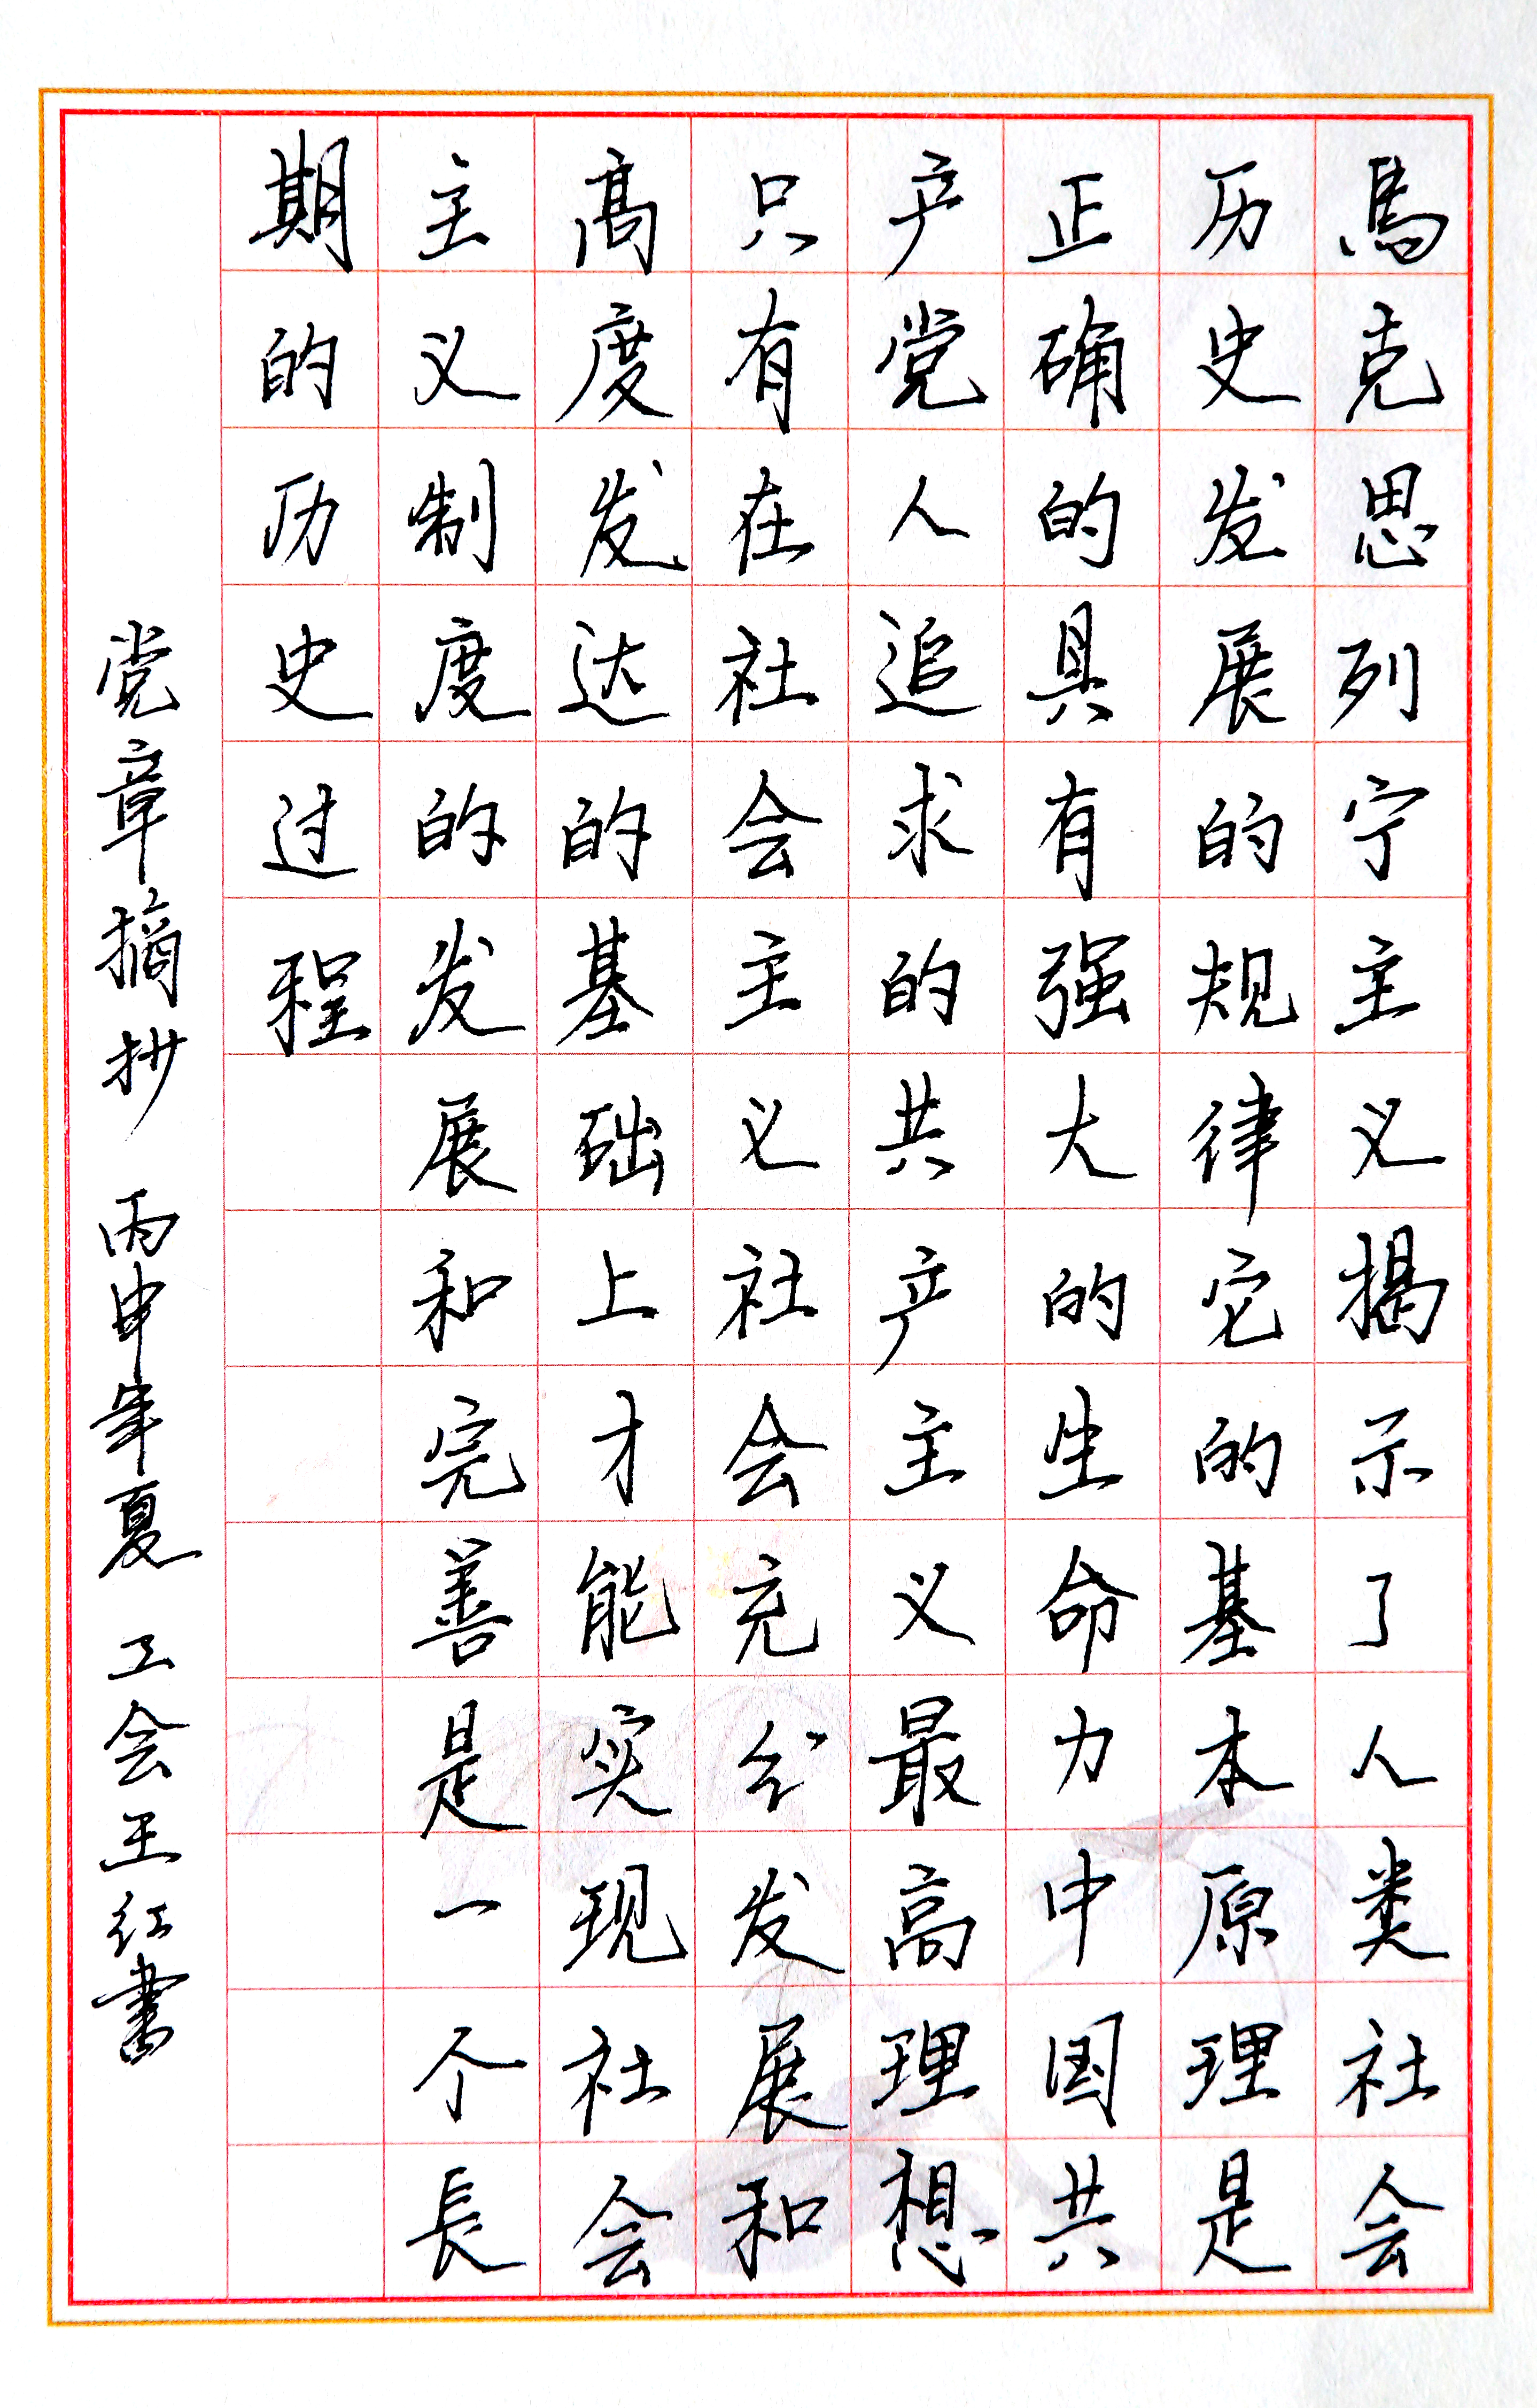 馬克思列宁主义揭示了人类社会
历史发展的规律它的基本原理是
正确的具有强大的生命力中国共
产党人追求的共产主义最高理想
只有在社会主义社会充分发展和
高度发达的基础上才能实现社会
主义制度的发展和完善是一个長
期的历史过程
党章摘抄 丙申年夏 工会王红書